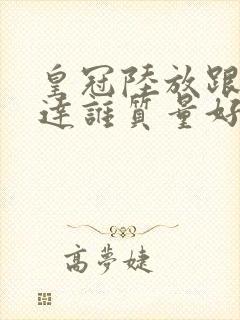 皇冠陸放跟
達誰質量好
高夢婕